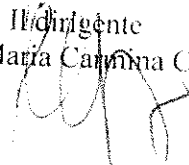 Il dirigente
Maria Carmina C